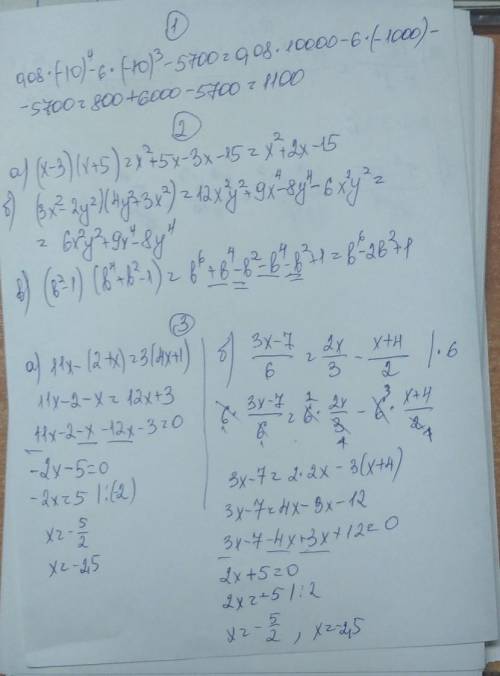 1
0,08·(-10)⁴-6·(-10)³-5700=0,08·10000-6·(-1000)-
-5700=800+6000-5700=1100
2
а) (x-3)(x+5)=x²+5x-3x-15=x²+2x-15
б) (3x²-2y²)(4y²+3x²)=12x²y²+9x⁴-8y⁴-6x²y²=
= 6x²y²+9x⁴-8y⁴
в) (b²-1)(b⁴+b²-1)=b⁶+b⁴-b²-b⁴-b²+1=b⁶-2b²+1
3
а) 11x-(2+x)=3(4x+1)
11x-2-x=12x+3
11x-2-x-12x-3=0
-2x-5=0
-2x=5 |:(-2)
x=-5/2
x=-2,5
б) (3x-7)/6=2x/3-(x+4)/2 |·6
6·(3x-7)/6=6²·2x/3₁-6³·(x+4)/2₁
3x-7=2·2x-3(x+4)
3x-7=4x-3x-12
3x-7-4x+3x+12=0
2x+5=0
2x=-5 |:2
x=-5/2, x=-2,5